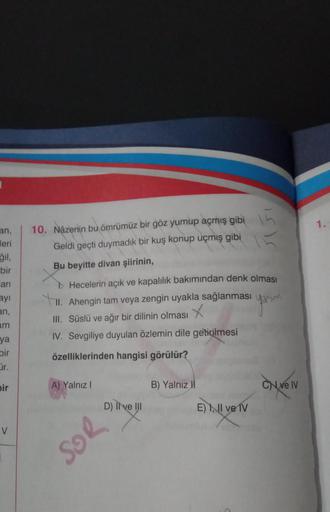 an,
leri
ğil,
bir
arı
ayı
an,
ım
ya
bir
ür.
bir
V
10. Nâzenin bu ömrümüz bir göz yumup açmış gibi 15
Geldi geçti duymadık bir kuş konup uçmış gibi 15
Bu beyitte divan şiirinin,
I. Hecelerin açık ve kapalılık bakımından denk olması
II. Ahengin tam veya zengin uyakla sağlanması yarım
III. Süslü ve ağır bir dilinin olması X
IV. Sevgiliye duyulan özlemin dile getirilmesi
özelliklerinden hangisi görülür?
A) Yalnız I B) Yalnız II C) I ve IV
D) II ve III E) I, II ve IV
SOR
1.